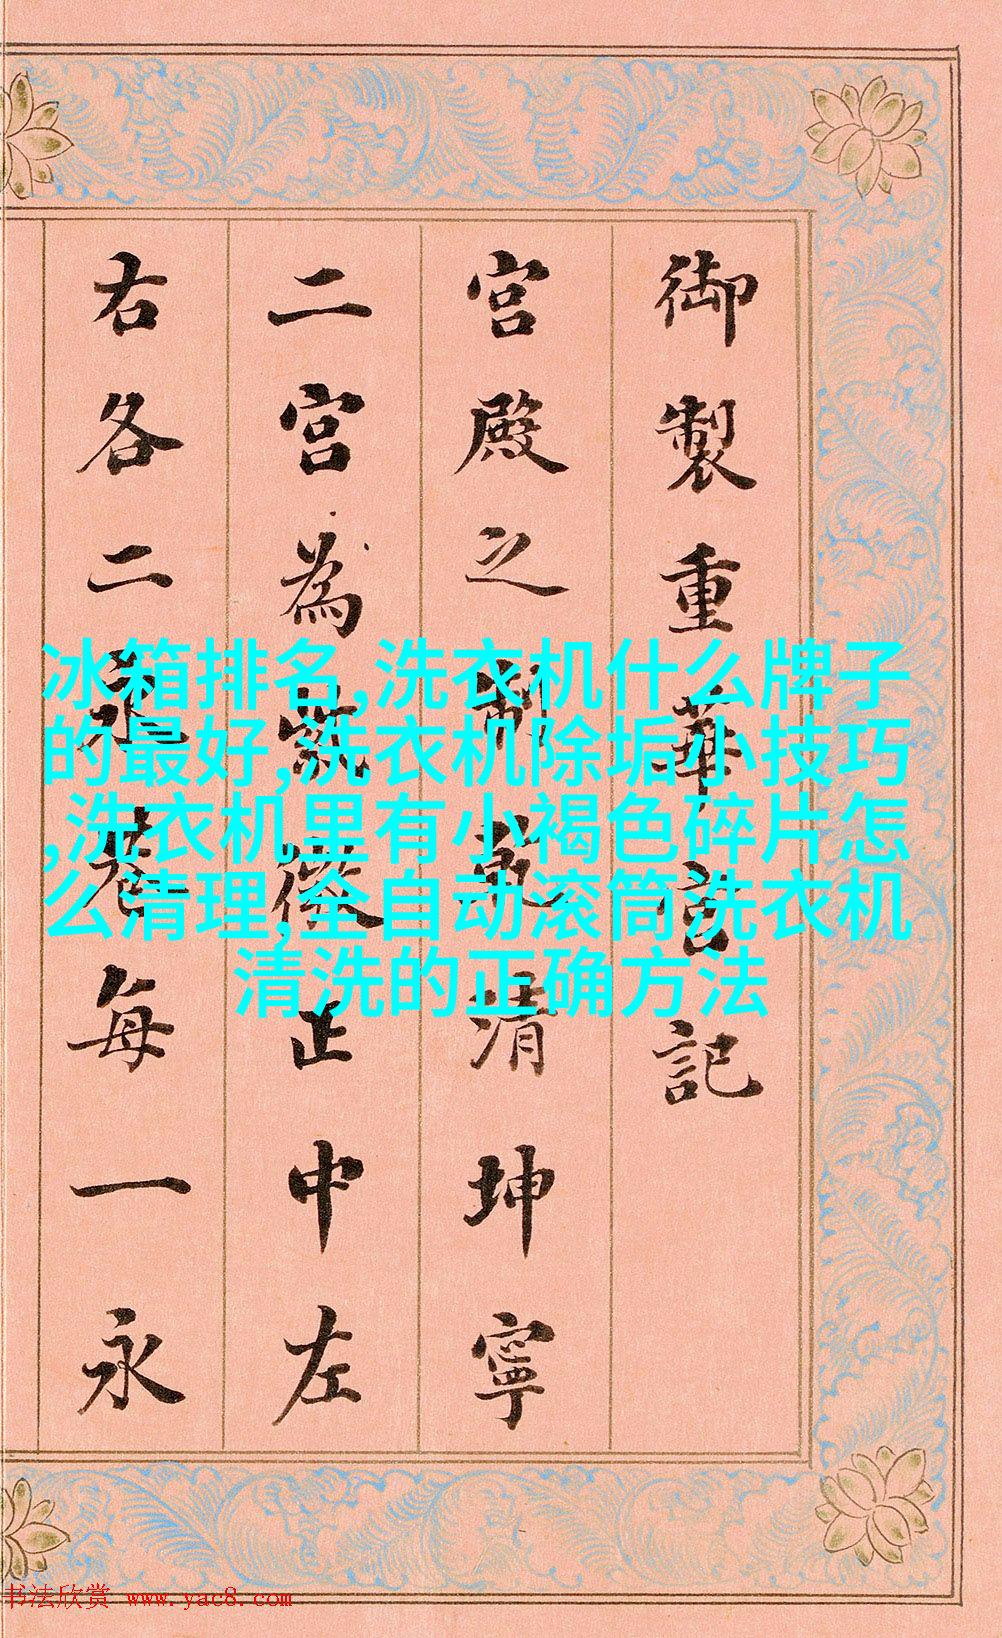 御製重華宮記
宮殿之制乾清坤寧
二宮為正中左
右各二永巷每一永
冰箱排名,洗衣机什么牌子
的最好,洗衣机除垢小技巧
,洗衣机里有小褐色碎片怎
么清理,全自动滚筒洗衣机
清洗的正确方法
书法欣赏 www.yac8.com